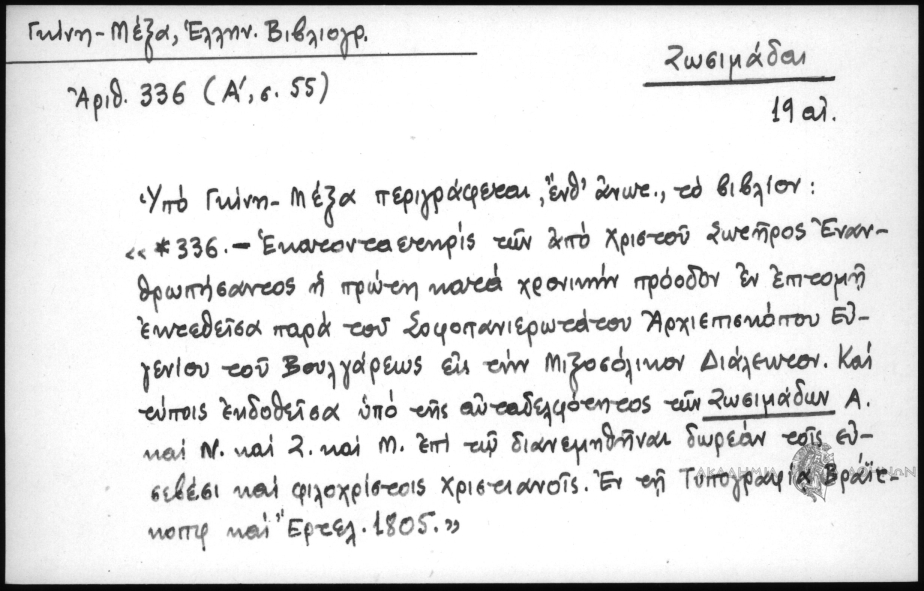 Γκίνη-Μέξα, Ἑλλην. Βιβλιογρ.
Ἀριθ. 336 (Α', σ. 55)
Ζωσιμάδαι
19 αἰ.
Ὑπό Γκίνη-Μέξα περιγράφεται, ἔνθ' ἄνωτ., τὸ βιβλίον:
«*336.- Ἑκατονταετηρίς τῶν ἀπό Χριστοῦ Σωτῆρος Ἐναν-
θρωπήσαντος ἡ πρώτη κατά χρονικήν πρόοδον ἐν ἐπιτομῇ
ἐκτεθεῖσα παρά τοῦ Σοφοπανιερωτάτου Ἀρχιεπισκόπου Εὐ-
γενίου τοῦ Βουλγάρεως εἰς τήν Μιξοσόλικον Διάλεκτον. Καί
τύποις ἐκδοθεῖσα ὑπό τῆς αὐταδελφότητος τῶν Ζωσιμάδων Α.
καί Ν. καί Ζ. καί Μ. ἐπί τῷ διανεμηθῆναι δωρεάν τοῖς εὐ-
σεβέσι καί φιλοχρίστοις Χριστιανοῖς. Ἐν τῇ Τυπογραφίᾳ Βράϊτ-
κοπφ καί Ἔρτελ. 1805.»
ΑΚΑΔΗΜΙΑ ΑΘΗΝΩΝ